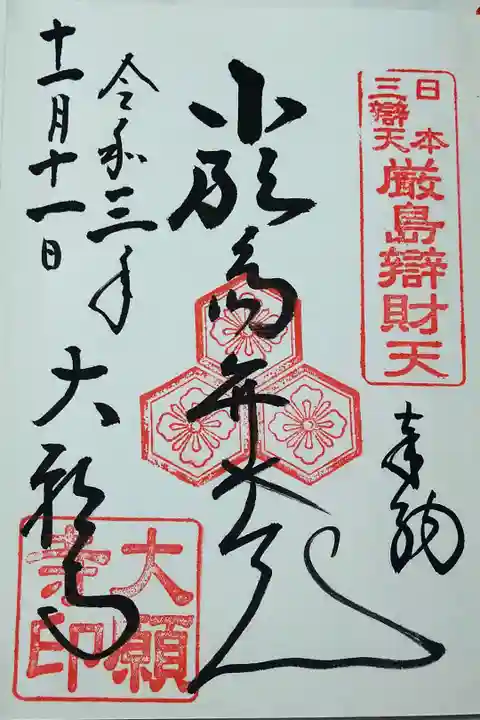 日本
三辯天
厳島辯財天
奉納
厳島弁才天
令和三年
十一月十一日
大願寺
大願
寺印